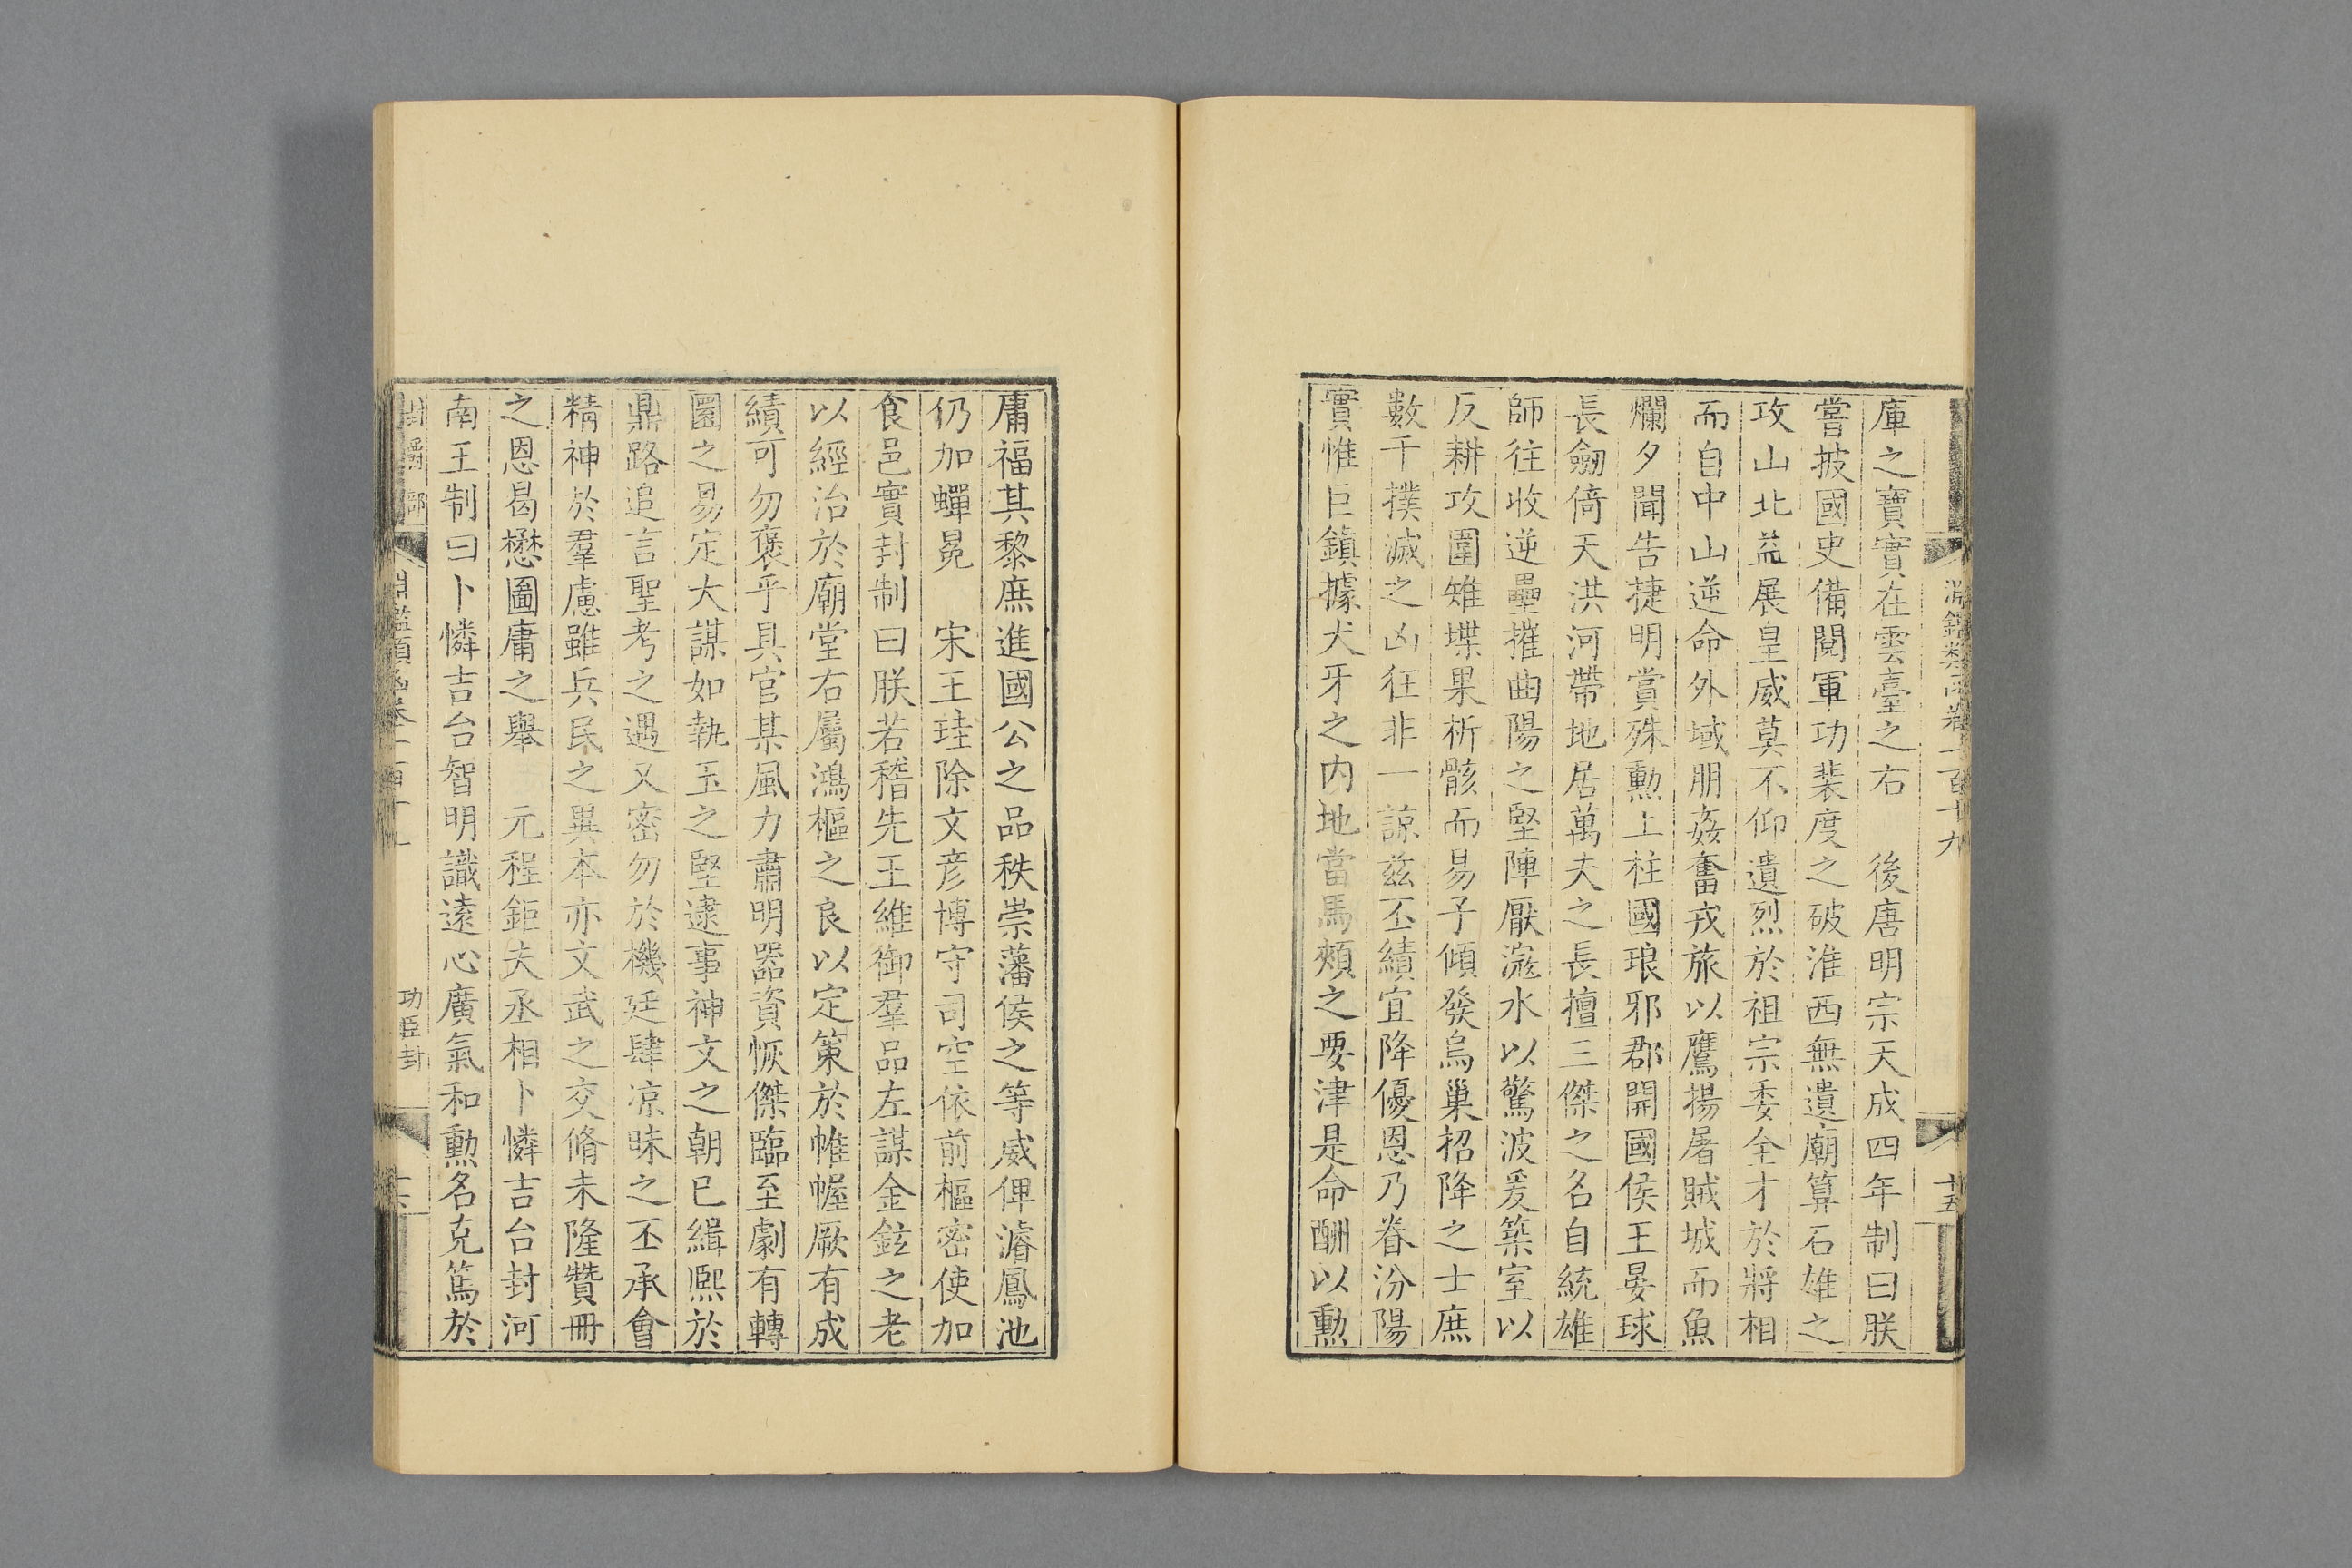 淵鑑類函卷一百十九
十五
庫之寶實在雲臺之右　後唐明宗天成四年制曰朕
嘗披國史備閱軍功裴度之破淮西無遺廟算石雄之
攻山北益展皇威莫不仰遺烈於祖宗委全才於將相
而自中山逆命外域朋姦奮戎旅以鷹揚屠賊城而魚
爛夕聞告捷明賞殊勳上柱國琅邪郡開國侯王晏球
長劒倚天洪河帶地居萬夫之長擅三傑之名自統雄
師往收逆壘摧曲陽之堅陣厭㴲水以驚波爰築室以
反耕攻圍雉堞果析骸而易子傾發烏巢招降之士庶
數千撲滅之凶徒非一諒茲丕績宜降優恩乃眷汾陽
實惟巨鎮據犬牙之內地當馬頰之要津是命酬以勳
庸福其黎庶進國公之品秩崇藩侯之等威俾濬鳳池
仍加蟬冕　宋王珪除文彥博守司空依前樞密使加
食邑實封制曰朕若稽先王維御羣品左謀金鉉之老
以經治於廟堂右屬鴻樞之良以定策於帷幄厥有成
績可勿褒乎具官某風力肅明器資恢傑臨至劇有轉
圜之易定大謀如執玉之堅逮事神文之朝已緝熙於
鼎路追言聖考之遇又密勿於機廷肆凉昧之丕承會
精神於羣慮雖兵民之異本亦文武之交脩未隆贊冊
之恩曷懋圖庸之舉　元程鉅夫丞相卜憐吉台封河
南王制曰卜憐吉台智明識遠心廣氣和勳名克篤於
封爵部
淵鑑類函卷一百十九
功臣封